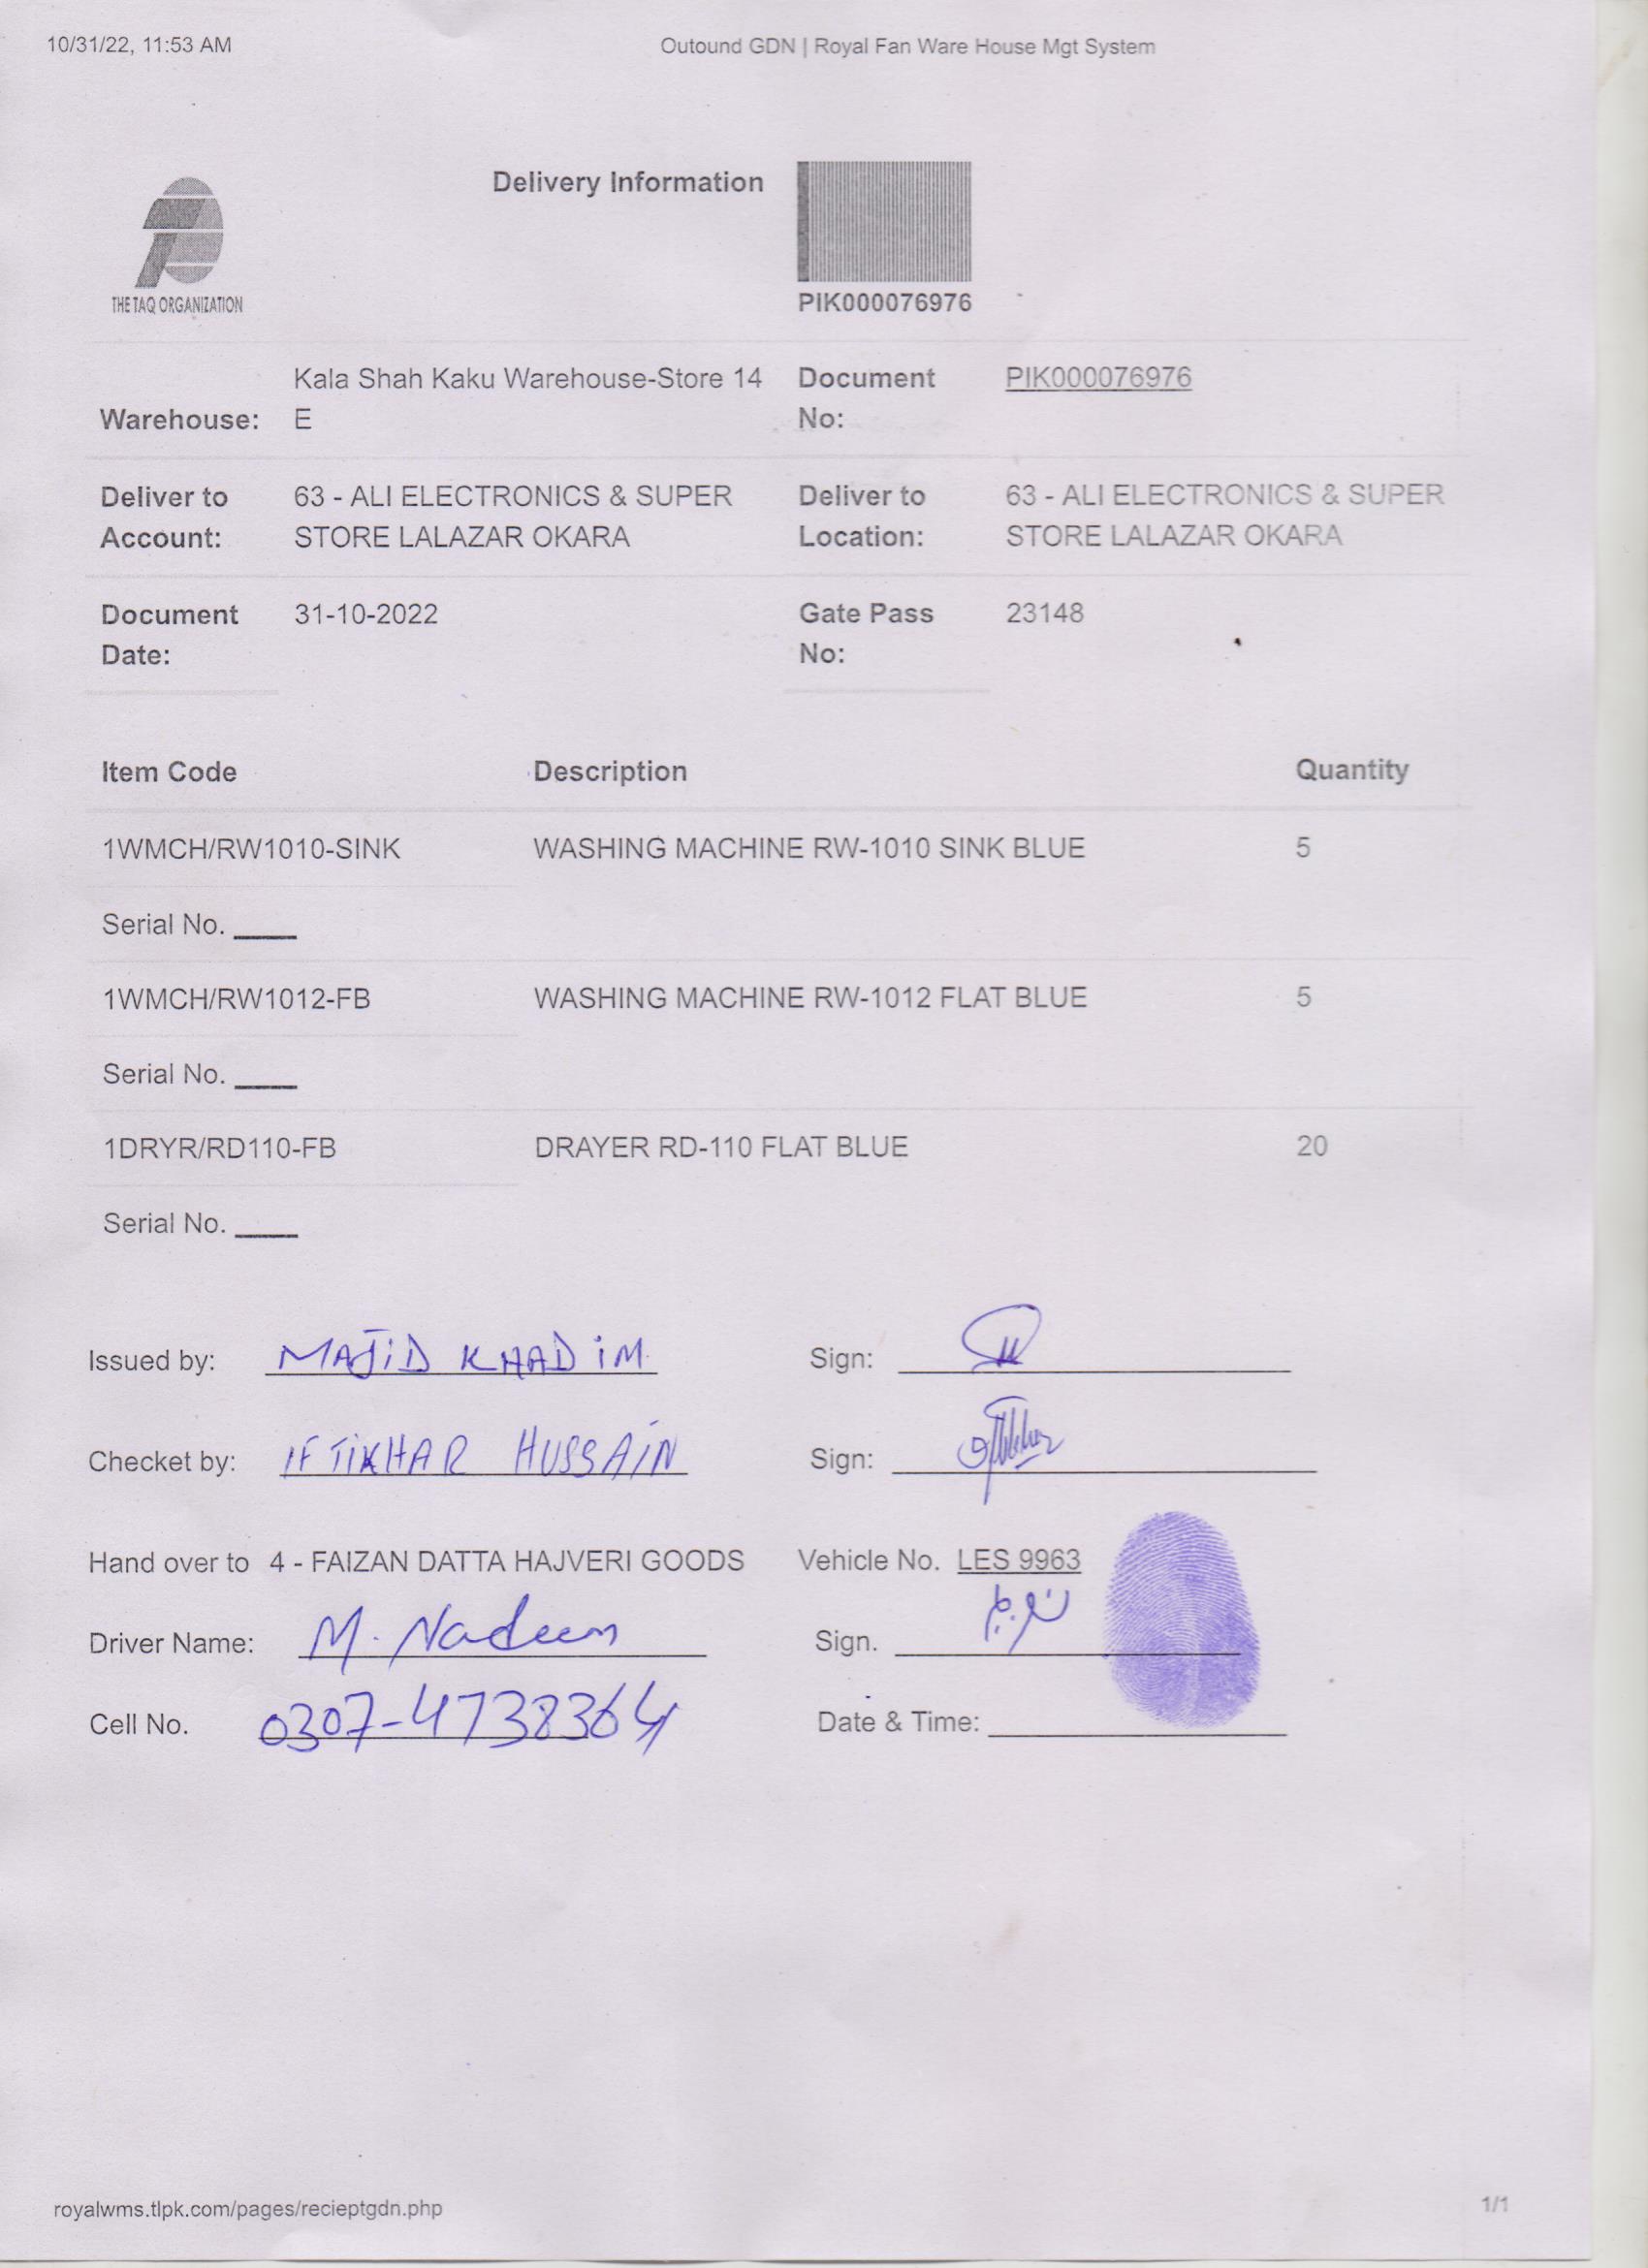 10/31/22, 11:53 AM
Outound GDN | Royal Fan Ware House Mgt System
Delivery Information
THE TAQ ORGANIZATION
PIK000076976
Kala Shah Kaku Warehouse-Store 14 Document PIK000076976
Warehouse: E No:
Deliver to 63 - ALI ELECTRONICS & SUPER Deliver to 63 - ALI ELECTRONICS & SUPER
Account: STORE LALAZAR OKARA Location: STORE LALAZAR OKARA
Document 31-10-2022 Gate Pass 23148
Date: No:
Item Code Description Quantity
1WMCH/RW1010-SINK WASHING MACHINE RW-1010 SINK BLUE 5
Serial No. ____
1WMCH/RW1012-FB WASHING MACHINE RW-1012 FLAT BLUE 5
Serial No. ____
1DRYR/RD110-FB DRAYER RD-110 FLAT BLUE 20
Serial No. ____
Issued by: MAJiD KHADiM Sign:
Checket by: IFTIKHAR HUSSAIN Sign:
Hand over to 4 - FAIZAN DATTA HAJVERI GOODS Vehicle No. LES 9963
Driver Name: M. Nadeem Sign.
Cell No. 0307-4738364 Date & Time:
royalwms.tlpk.com/pages/recieptgdn.php 1/1